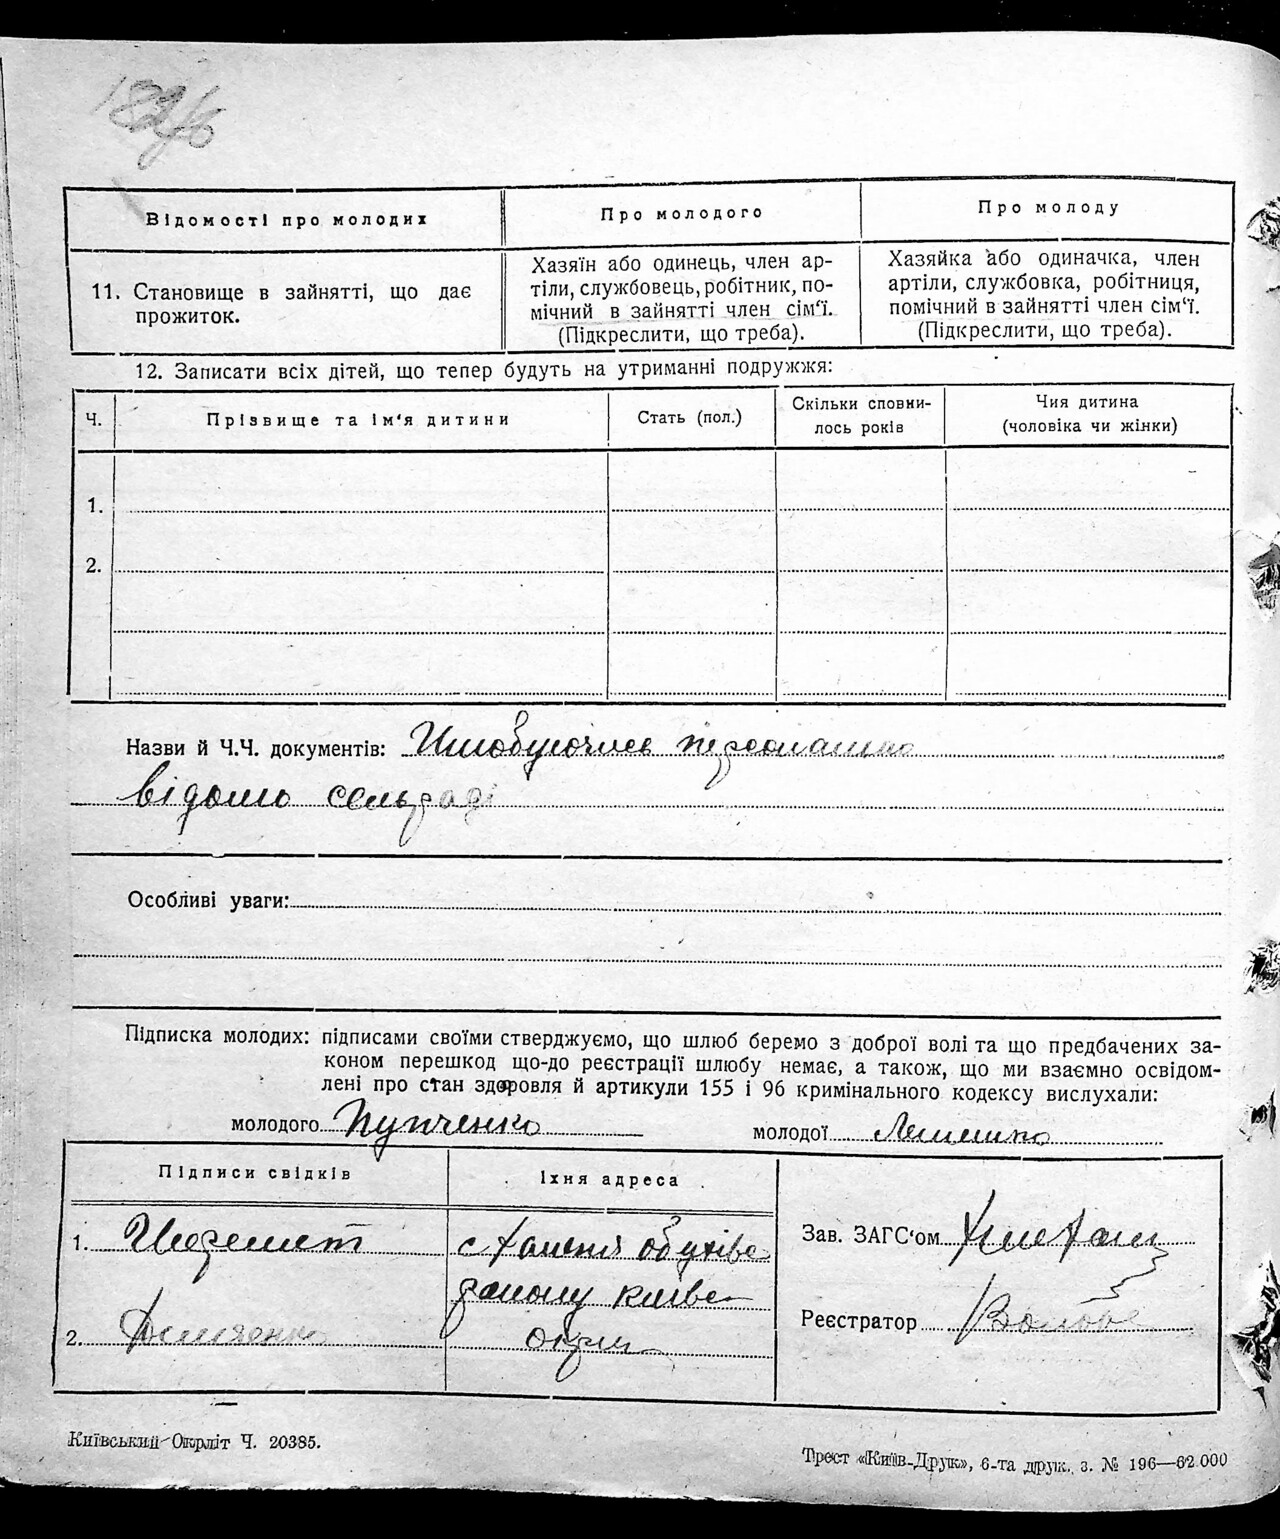 Відомості про молодих
Про молодого
Про молоду
11. Становище в зайнятті, що дає
прожиток.
Хазяїн або одинець, член ар-
тіли, службовець, робітник, по-
мічний в зайнятті член сім‘ї.
(Підкреслити, що треба).
Хазяйка або одиначка, член
артіли, службовка, робітниця,
помічний в зайнятті член сім‘ї.
(Підкреслити, що треба).
12. Записати всіх дітей, що тепер будуть на утриманні подружжя:
Ч.
Прізвище та ім‘я дитини
Стать (пол.)
Скільки сповни-
лось років
Чия дитина
(чоловіка чи жінки)
1.
2.
Назви й Ч.Ч. документів: персонально
відомо сельраді
Особливі уваги:
Підписка молодих: підписами своїми стверджуємо, що шлюб беремо з доброї волі та що предбачених за-
коном перешкод що-до реєстрації шлюбу немає, а також, що ми взаємно освідом-
лені про стан здоровля й артикули 155 і 96 кримінального кодексу вислухали:
молодого Пупченко
молодої
Підписи свідків
Їхня адреса
1.
с обухівс
району київс
2.
окр
Зав. ЗАГС‘ом
Реєстратор
Київський Окрліт Ч. 20385.
Трест «Київ-Друк», 6-та друк. з. № 196—62.000